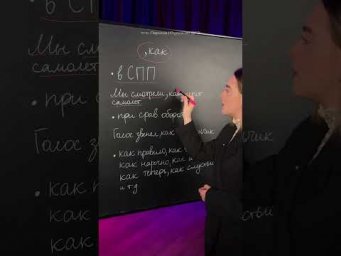 , как
• в СПП
Мы смотрим, как
самолет
• при срав.
Голос звенел, как
• как правило, как
как нарочно, как и
как теперь, как следствие
и т.д